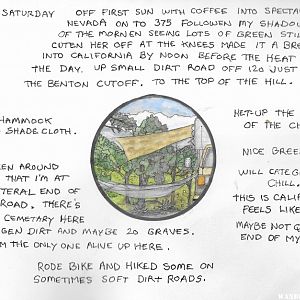 SATURDAY OFF FIRST SUN WITH COFFEE INTO SPECTA
NEVADA ON TO 375 FOLLOWEN MY SHADOW
OF THE MORNEN SEEING LOTS OF GREEN STIL
CUTEN HER OFF AT THE KNEES MADE IT A BRE
INTO CALIFORNIA BY NOON BEFORE THE HEAT
THE DAY. UP SMALL DIRT ROAD OFF 120 JUST
THE BENTON CUTOFF. TO THE TOP OF THE HILL.
HAMMOCK
SHADE CLOTH.
EEN AROUND
THAT I'M AT
TERAL END OF
ROAD. THERE'S
CEMETARY HERE
GEN DIRT AND MAYBE 20 GRAVES.
M THE ONLY ONE ALIVE UP HERE.
HET-UP THE
OF THE CH
NICE GREE
WILL CATEG
CHILL.
THIS IS CALIF
FEELS LIKE
MAYBE NOT Q
END OF MY
RODE BIKE AND HIKED SOME ON
SOMETIMES SOFT DIRT ROADS.